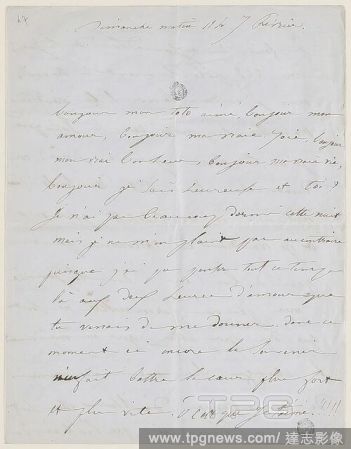 Dimanche matin 7 février.
bonjour mon toto aimé, bonjour mon
amour, bonjour ma vraie joie, bonjour
mon vrai bonheur, bonjour ma vraie vie,
bonjour, je suis heureuse et toi ?
Je n'ai pas beaucoup dormi cette nuit
mais je ne m'en plains pas au contraire
puisque j'ai pu tout ce temps
là aux heures d'amour que
tu venais de me donner dans ce
moment ci encore le souvenir
m'en fait battre le cœur plus fort
et plus vite. C'est que je t'aime.
TPG
www.tpgnews.com / 達志影像